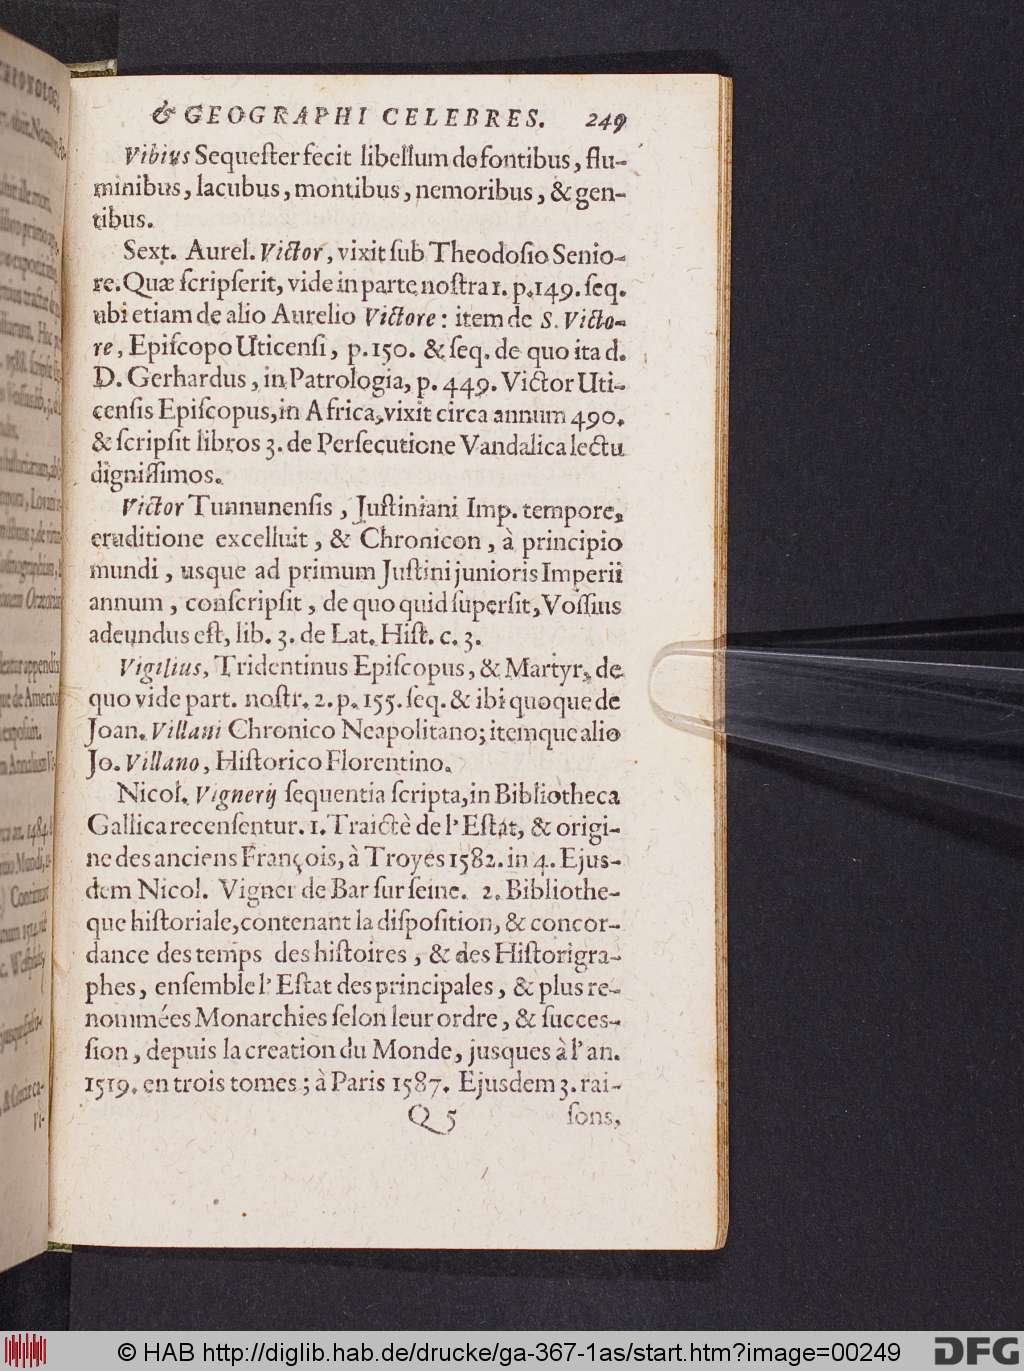 & GEOGRAPHI CELEBRES. 249
Vibius Sequeſter fecit libellum de fontibus, flu-
minibus, lacubus, montibus, nemoribus, & gen-
tibus.
Sext. Aurel. Victor, vixit ſub Theodoſio Senio-
re. Quæ ſcripſerit, vide in parte noſtra 1. p. 149. ſeq.
ubi etiam de alio Aurelio Victore: item de S. Victo-
re, Epiſcopo Uticenſi, p. 150. & ſeq. de quo ita d.
D. Gerhardus, in Patrologia, p. 449. Victor Uti-
cenſis Epiſcopus, in Africa, vixit circa annum 490.
& ſcripſit libros 3. de Perſecutione Vandalica lectu
digniſſimos.
Victor Tunnunenſis, Juſtiniani Imp. tempore,
eruditione excelluit, & Chronicon, à principio
mundi, usque ad primum Juſtini junioris Imperii
annum, conſcripſit, de quo quid ſuperſit, Voſſius
adeundus eſt, lib. 3. de Lat. Hiſt. c. 3.
Vigilius, Tridentinus Epiſcopus, & Martyr, de
quo vide part. noſtr. 2. p. 155. ſeq. & ibi quoque de
Joan. Villani Chronico Neapolitano; itemque alio
Jo. Villano, Hiſtorico Florentino.
Nicol. Vignerij ſequentia ſcripta, in Bibliotheca
Gallica recenſentur. 1. Traictè de l' Eſtat, & origi-
ne des anciens François, à Troyes 1582. in 4. Ejus-
dem Nicol. Vigner de Bar ſur ſeine. 2. Bibliothe-
que hiſtoriale, contenant la diſpoſition, & concor-
dance des temps des hiſtoires, & des Hiſtorigra-
phes, enſemble l' Eſtat des principales, & plus re-
nommées Monarchies ſelon leur ordre, & ſucces-
ſion, depuis la creation du Monde, jusques à l' an.
1519. en trois tomes; à Paris 1587. Ejusdem 3. rai-
Q 5 ſons,
© HAB http://diglib.hab.de/drucke/ga-367-1as/start.htm?image=00249
DFG